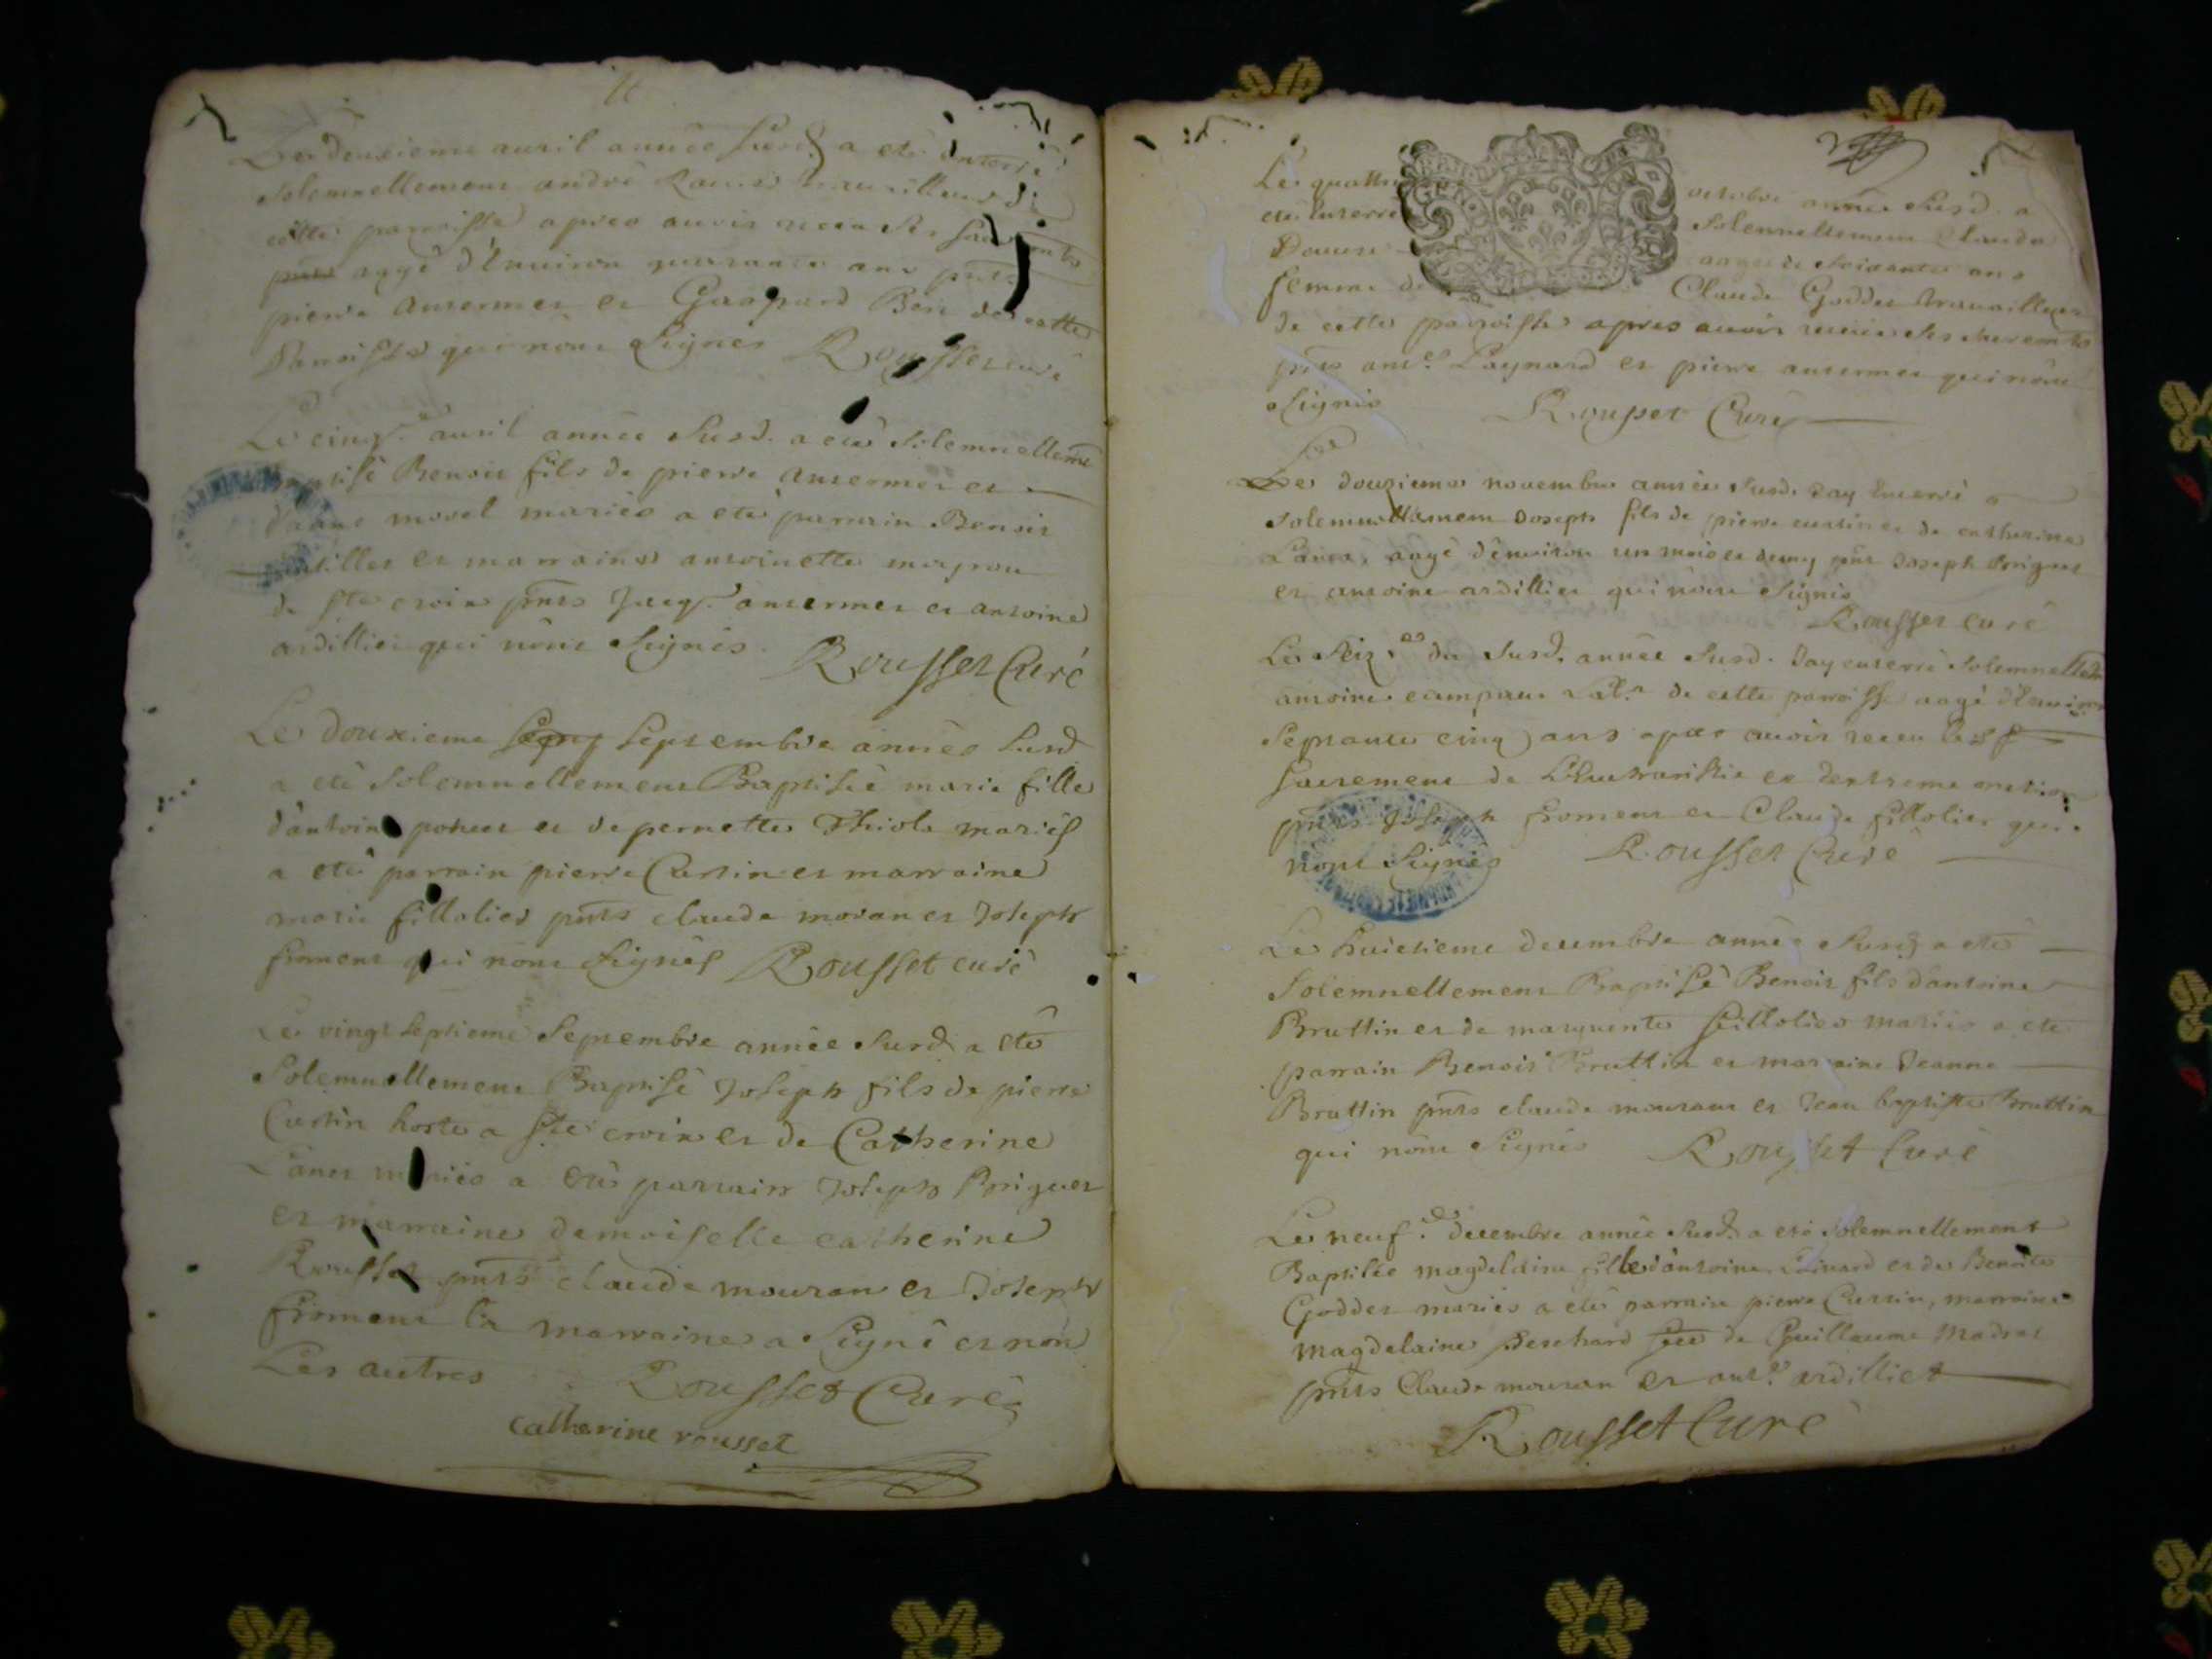 Le deuxieme auril année Susd. a eté Enterré
Solemnellement andré travailleur de
cette parroisse apres auoir receu Ses Sacrements
aagé d'Enuiron quarante ans pnts
pierre antermet et Gaspard de cette
Parroisse qui n'ont Signés Rousset curé
Le cinq.e auril année Susd. a eté Solemnellemt
Benoit fils de pierre antermet et
morel mariés a eté parrain Benoit
et marraine antoinette
de Ste croix pnts Jacq. antermet et antoine
ardillier qui n'ont Signés. Rousset Curé
Le douxieme Septembre année Susd
a eté Solemnellement Baptisée marie fille
d'antoine et de pernette Thiolo mariés
a eté parrain pierre Curtin et marraine
marie fillolier pnts claude moran et Joseph
froment qui n'ont Signés Rousset curé
Le vingt Septieme Septembre année Susd. a eté
Solemnellement Baptisé Joseph fils de pierre
Curtin hoste a Ste croix et de Catherine
mariés a eté parrain Joseph Briguet
et marraine demoiselle catherine
Rousset pnts claude mouran et Joseph
froment la marraine a Signé et non
Les autres Rousset Curé
catherine rousset
Le octobre année Susd. a
eté Enterré Solennellement Claude
aagée de Soixante ans
femme de Claude Goddet travailleur
de cette parroisse apres auoir receu Ses Sacremts
pnts ant.e Paynard et pierre antermet qui n'ont
Signés Rousset Curé
Le douzieme nouembre année Susd. Jay Enterré
Solemnellement Joseph fils de pierre curtin et de catherine
aagé d'enuiron un mois et demy pnts Joseph Briguet
et antoine ardillier qui n'ont Signés
Rousset curé
Le Seiz.e du Susd. année Susd. Jay enterré Solemnellemt
antoine de cette parroisse aagé d'Enuiron
Septante cinq ans apres auoir receu Les
Sacrement de L'Eucharistie et dextreme onction
pnts Joseph froment et Claude fillolier qui
n'ont Signés Rousset Curé
Le huictieme decembre année Susd. a eté
Solemnellement Baptisé Benoit fils d'antoine
Bruttin et de marguerite fillolier mariés a eté
parrain Benoit Bruttin et marraine Jeanne
Bruttin pnts claude mouran et Jean baptiste Bruttin
qui n'ont Signés Rousset Curé
Le neuf.e decembre année Susd. a eté Solemnellement
Baptisée magdelaine fille d'antoine et de Benoite
Goddet mariés a eté parrain pierre Curtin, marraine
magdelaine de Guillaume Madras
pnts Claude mouran et ant.e ardilliet
Rousset Curé